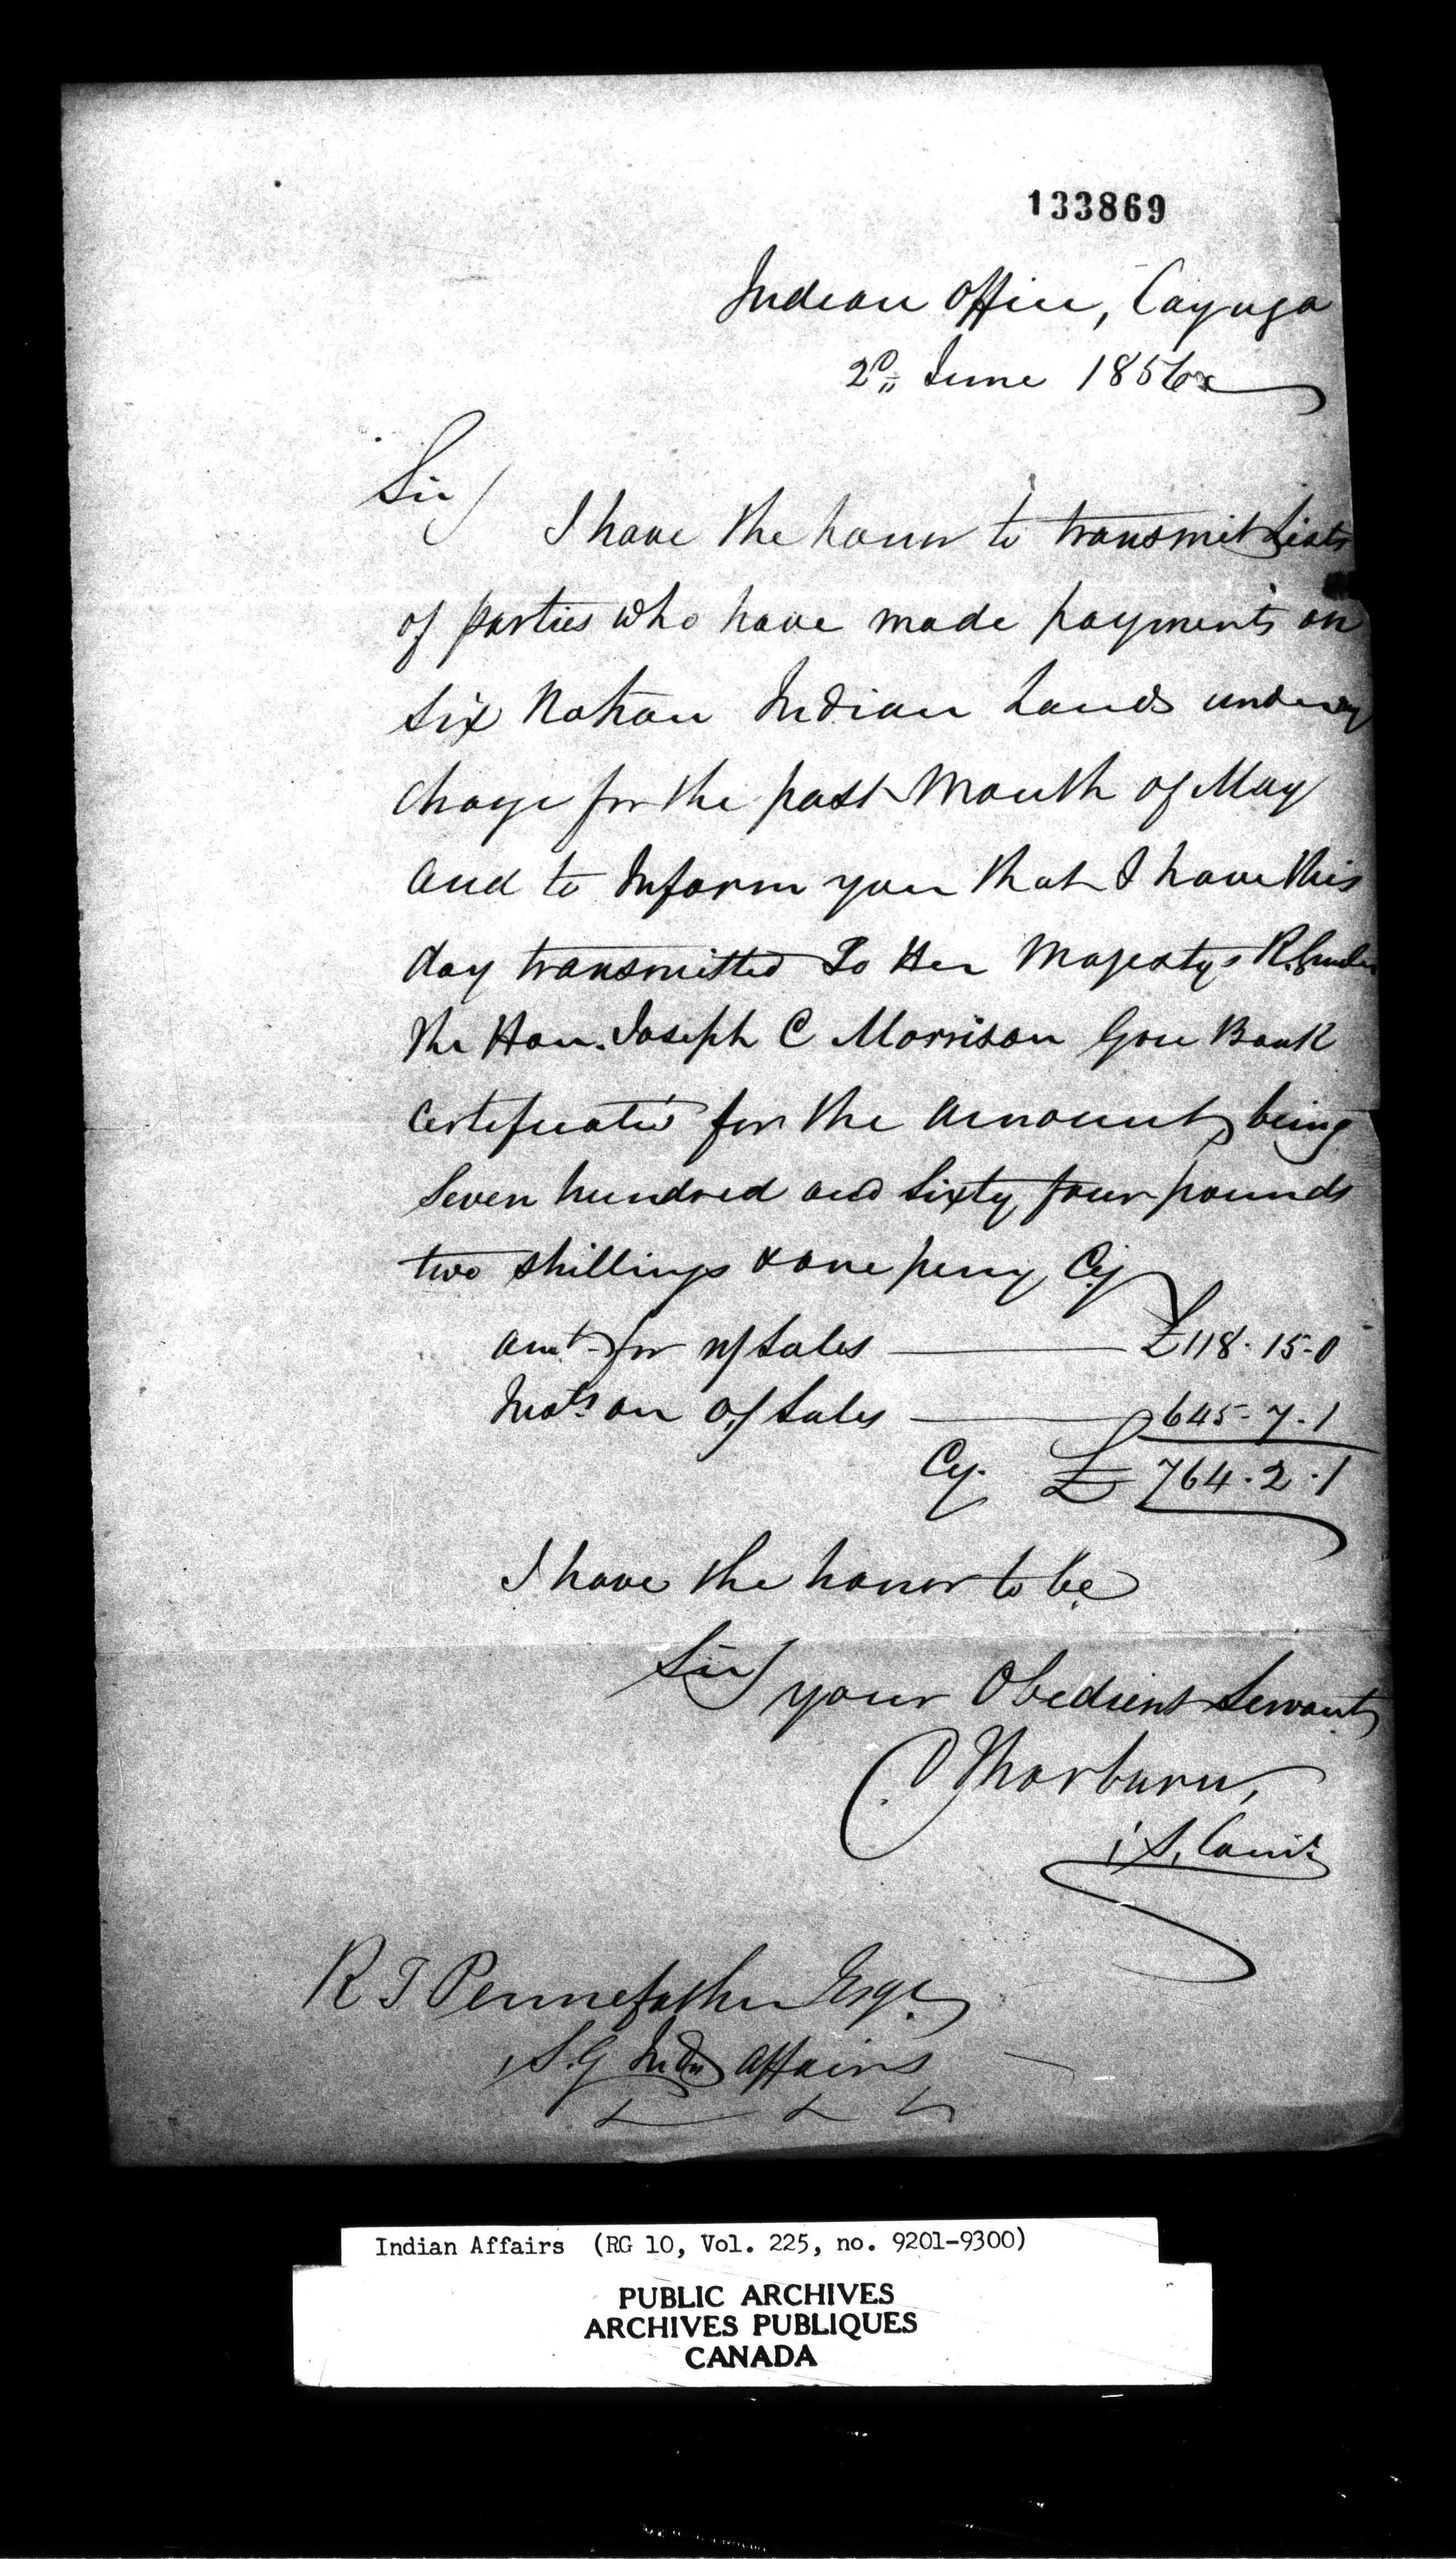 133869
Indian Office, Cayuga
2d June 1856
Sir
I have the honor to transmit Lists
of parties who have made payments on
Six Nation Indian Lands under my
charge for the past Month of May
and to Inform you that I have this
day transmitted To Her Majestys
The Hon. Joseph C Morrison Gore Bank
Certificates for the amount, being
Seven hundred and Sixty four pounds
two shillings & one penny Cy
amt for n/Sales £118.15.0
Insts on o/Sales 645.7.1
Cy. £ 764.2.1
I have the honor to be
Sir your Obedient Servant
D Thorburn,
S. Comr
R T Pennefather Esqr
S.G Indn Affairs
Indian Affairs (RG 10, Vol. 225, no. 9201-9300)
PUBLIC ARCHIVES
ARCHIVES PUBLIQUES
CANADA